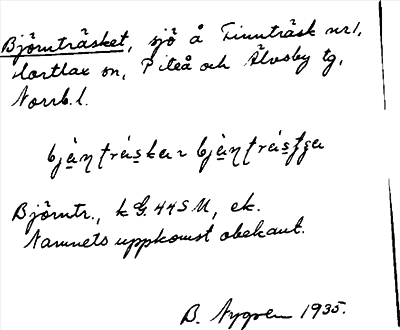 Björnträsket, sjö å Finnträsk nr 1,
Hortlax sn, Piteå och Älvsby tg,
Norrb. l.
Björntr., k G. 44 S M, ek.
Namnets uppkomst obekant.
B. Nygren 1935.